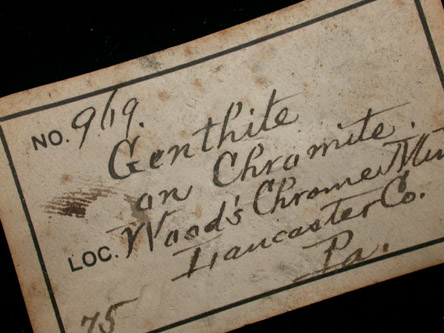 NO. 969.
Genthite
on Chromite.
LOC. Wood's Chrome Min
Lancaster Co.
Pa.
75